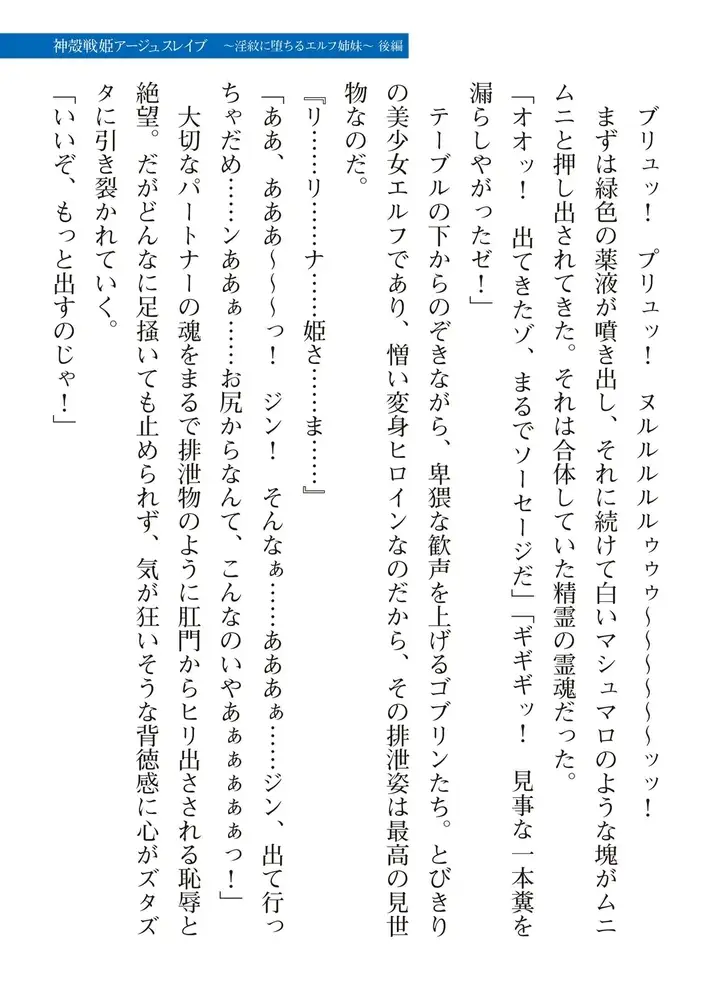 神殻戦姫アージュスレイブ　～淫紋に堕ちるエルフ姉妹～ 後編
　ブリュッ！　プリュッ！　ヌルルルルルゥゥゥ～～～～～～ッッ！
　まずは緑色の薬液が噴き出し、それに続けて白いマシュマロのような塊がムニ
ムニと押し出されてきた。それは合体していた精霊の霊魂だった。
「オオッ！　出てきたゾ、まるでソーセージだ」「ギギギッ！　見事な一本糞を
漏らしやがったゼ！」
　テーブルの下からのぞきながら、卑猥な歓声を上げるゴブリンたち。とびきり
の美少女エルフであり、憎い変身ヒロインなのだから、その排泄姿は最高の見世
物なのだ。
『リ……リ……ナ……姫さ……ま……』
「ああ、あああ～～～っ！　ジン！　そんなぁ……あああぁ……ジン、出て行っ
ちゃだめ……ンああぁ……お尻からなんて、こんなのいやあぁぁぁぁぁっ！」
　大切なパートナーの魂をまるで排泄物のように肛門からヒリ出さされる恥辱と
絶望。だがどんなに足掻いても止められず、気が狂いそうな背徳感に心がズタズ
タに引き裂かれていく。
「いいぞ、もっと出すのじゃ！」